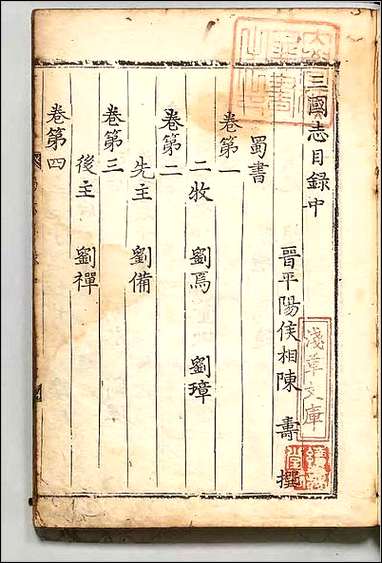 三國志目録中
晋平陽侯相陳 壽 撰
蜀書
卷第一
二牧 劉焉 劉璋
卷第二
先主 劉備
卷第三
後主 劉禪
卷第四
淺草文庫